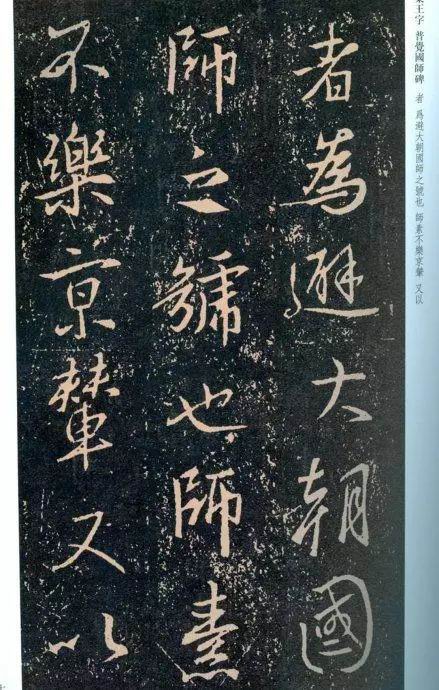 者為避大朝國
師之號也師素
不樂京輦又以
集王字 普覺國師碑 者 爲避大朝國師之號也 師素不樂京輦 又以